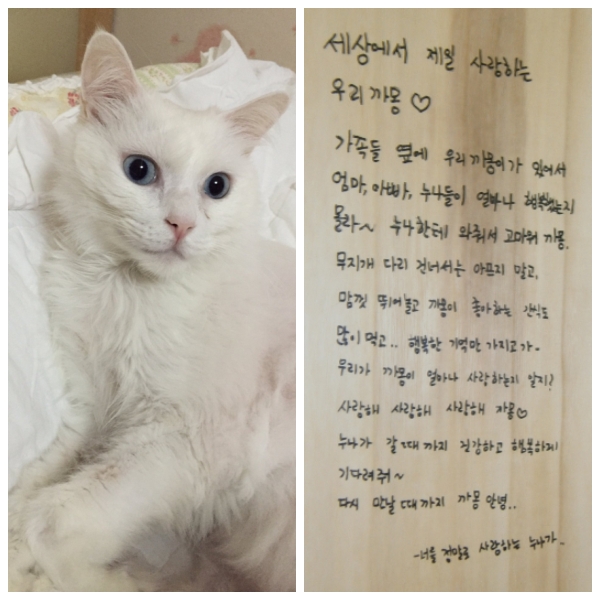 세상에서 제일 사랑하는
우리 까몽 ♡
가족들 옆에 우리 까몽이가 있어서
엄마, 아빠, 누나들이 얼마나 행복했는지
몰라~ 누나한테 와줘서 고마워 까몽.
무지개 다리 건너서는 아프지 말고,
맘껏 뛰어놀고 까몽이 좋아하는 간식도
많이 먹고.. 행복한 기억만 가지고 가-
우리가 까몽이 얼마나 사랑하는지 알지?
사랑해 사랑해 사랑해 까몽♡
누나가 갈 때까지 건강하고 행복하게
기다려줘~
다시 만날 때까지 까몽 안녕..
-너를 정말로 사랑하는 누나가-